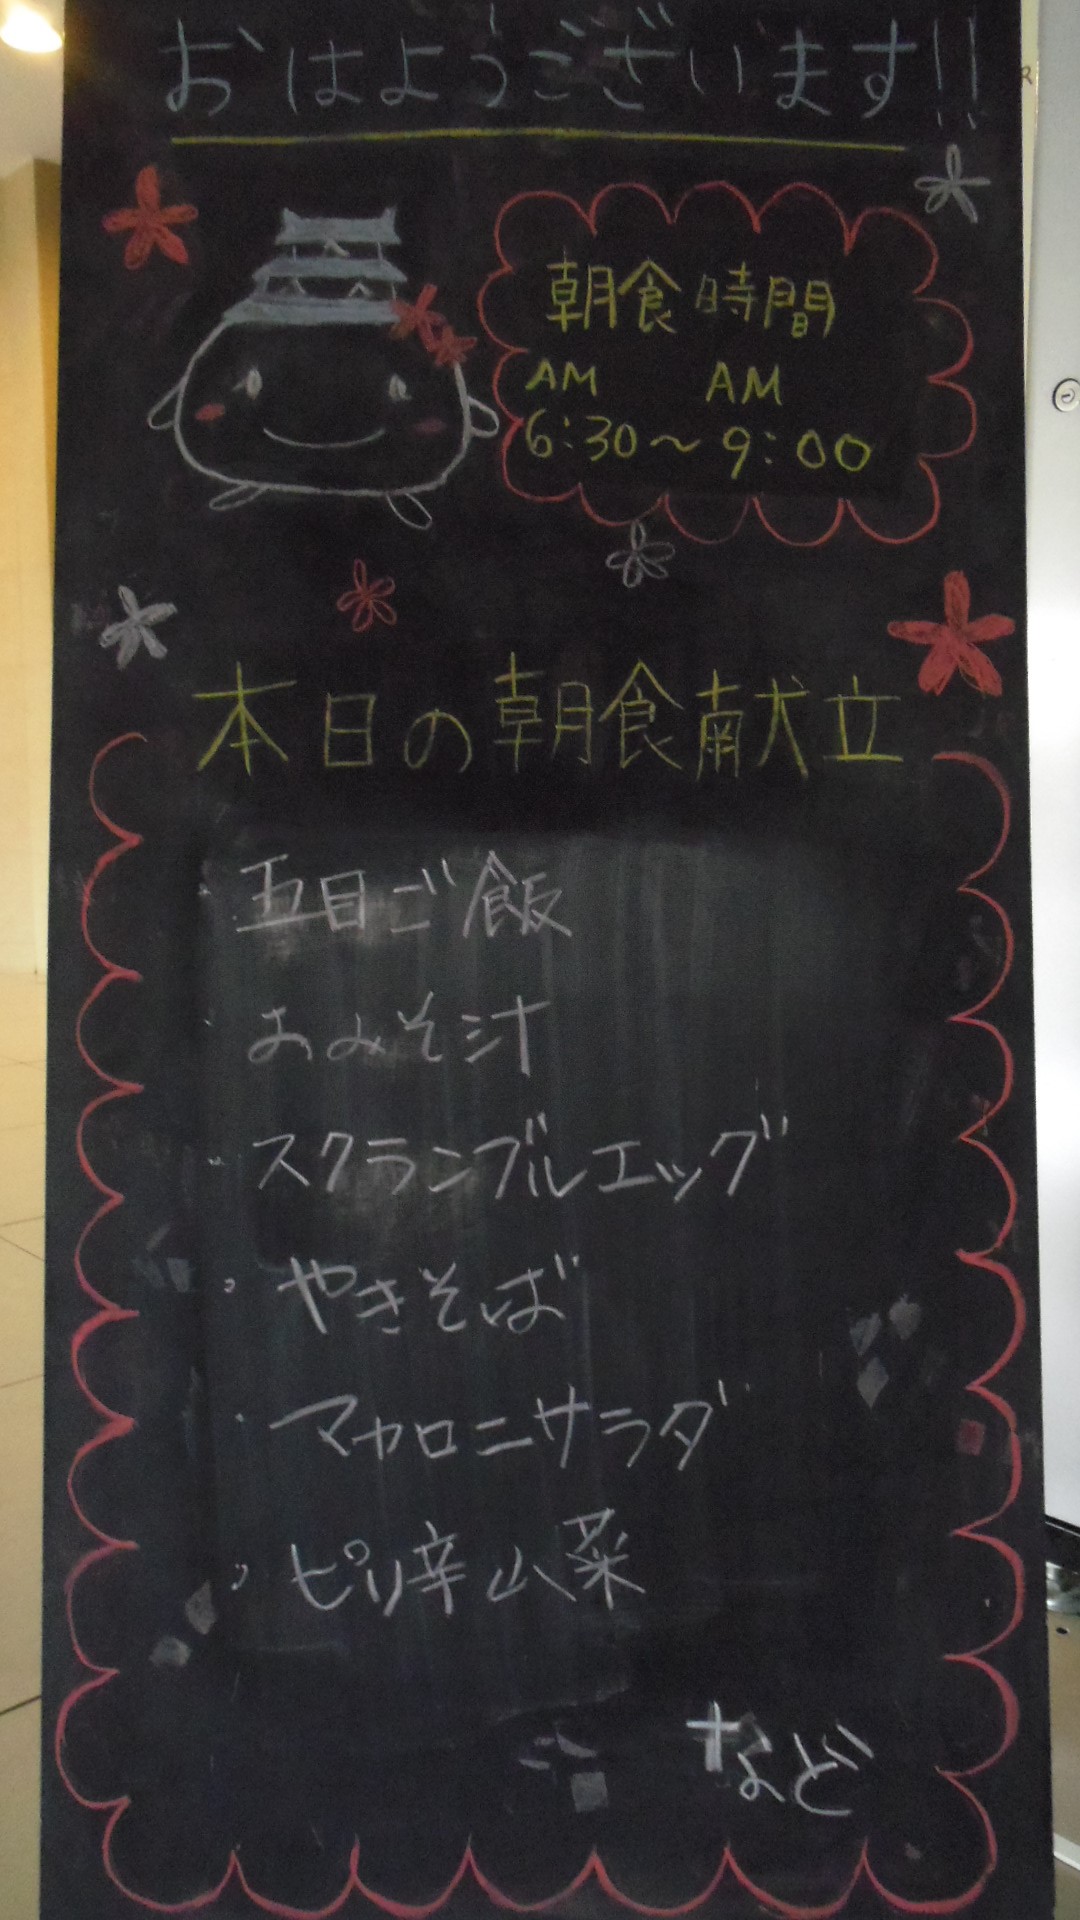 おはようございます!!
朝食時間
AM AM
6:30〜9:00
本日の朝食献立
・五目ご飯
・おみそ汁
・スクランブルエッグ
・やきそば
・マカロニサラダ
・ピリ辛山菜
など